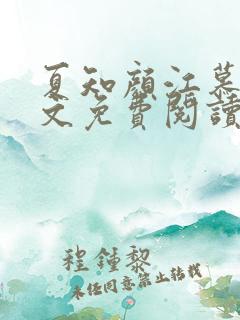 夏知顏江慕
文免費閱讀
程鍾黎
未任同意禁止转载